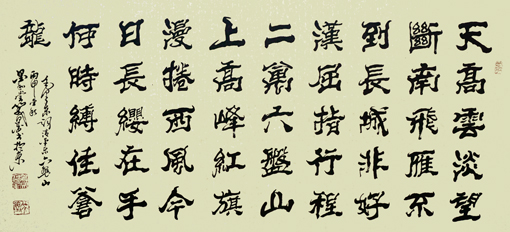 天高雲淡望
斷南飛雁不
到長城非好
漢屈指行程
二萬六盤山
上高峰紅旗
漫捲西風今
日長纓在手
何時縛住蒼
龍
毛澤東詞清平樂六盤山
丙申